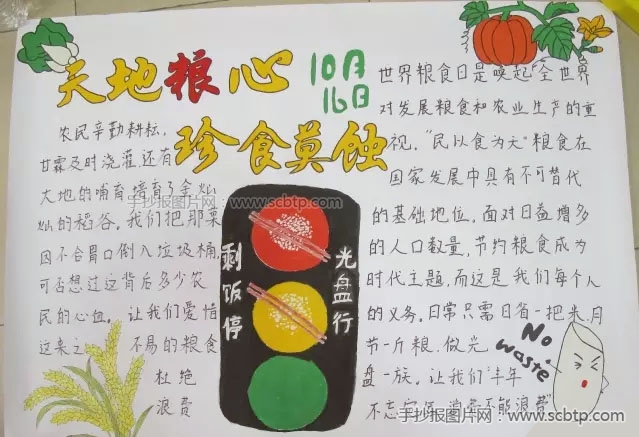 天地粮心
10月
16日
珍食莫蚀
农民辛勤耕耘,
甘霖及时浇灌还有
大地的哺育,培育了金灿
灿的稻谷。我们把那粟
因不合胃口倒入垃圾桶,
可否想过这背后多少农
民的心血。让我们爱惜
这来之不易的粮食
杜绝
浪费
剩饭停
光盘行
世界粮食日是唤起全世界
对发展粮食和农业生产的重
视。"民以食为天"粮食在
国家发展中具有不可替代
的基础地位。面对日益增多
的人口数量,节约粮食成为
时代主题,而这是我们每个人
的义务。日常只需日省一把米,月
节一斤粮,做光
盘一族。让我们"丰年
不忘
能浪费
No
waste
手抄报图片网:www.scbtp.com
手抄报图片网:www.scbtp.com
www.scbtp.com